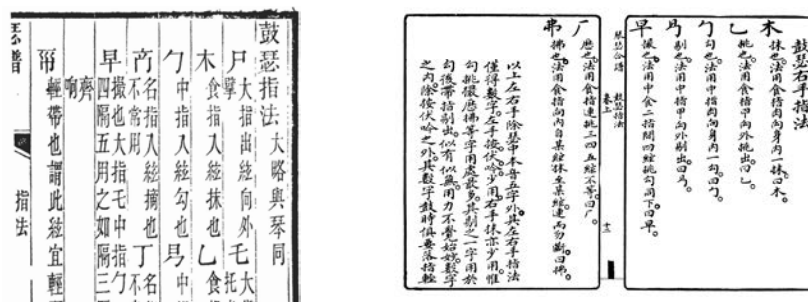 鼓瑟指法大略與琴同
尸擘大指出絃向外
乇托大
木食指入絃抹也
乙食
勹中指入絃勾也
𠃛中
啇名指入絃摘也不常用
丁名不
早撮也大指乇中指勹四隔五用之如隔三
齊響
輕帶也謂此絃宜輕
指法
瑟譜
鼓瑟右手指法
木抹也法用食指肉向身內一抹曰木
乙挑也法用食指甲向外挑出曰乙
勹勾也法用中指肉向身內一勾曰勹
剔也法用中指甲向外剔出曰
早撮也法用中食二指間四絃挑勾同下曰早
琴瑟合譜
卷上
鼓瑟指法
十三
厂歷也法用食指連挑三四五絃不等曰厂
弗拂也法用食指向內自某絃抹至某絃連而勿斷曰拂
以上左右手除瑟中本音五字外其左右手指法
僅得數字左手按伏吟少用右手抹亦少用惟
勾挑撮歷拂等字用處最多其剔之一字用於
勾後帶指剔出似有似無用力不覺始妙數字
之內除按伏吟之外其數字鼓時俱要落指輕